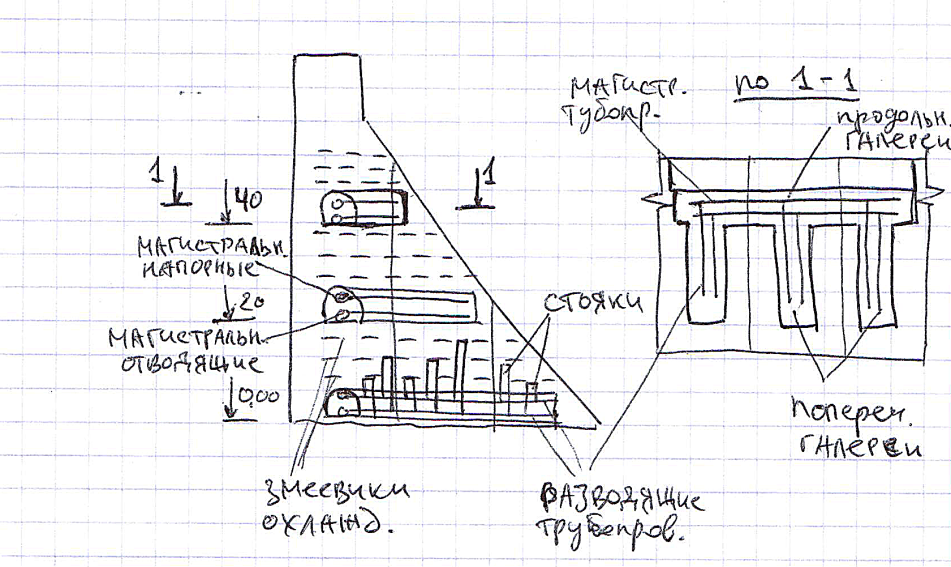 МАГИСТР.
ТУБОПР.
по 1-1
продольн.
ГАЛЕРЕИ
1
1
40
МАГИСТРАЛЬН.
НАПОРНЫЕ
20
СТОЯКИ
МАГИСТРАЛЬН.
ОТВОДЯЩИЕ
0,00
Попереч.
ГАЛЕРЕИ
ЗМЕЕВИКИ
ОХЛАЖД.
РАЗВОДЯЩИЕ
трубопров.